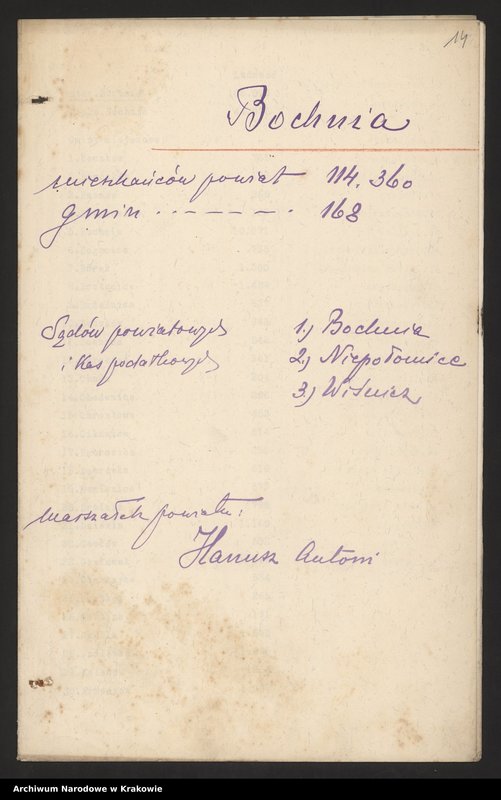 14
Bochnia
mieszkańców powiat 114.360
gmin . . - - - - - . 168
Sądów powiatowych 1.) Bochnia
i Kas podatkowych 2.) Niepołomice
3.) Wiśnicz
Marszałek powiatu:
Hanusz Antoni
Archiwum Narodowe w Krakowie